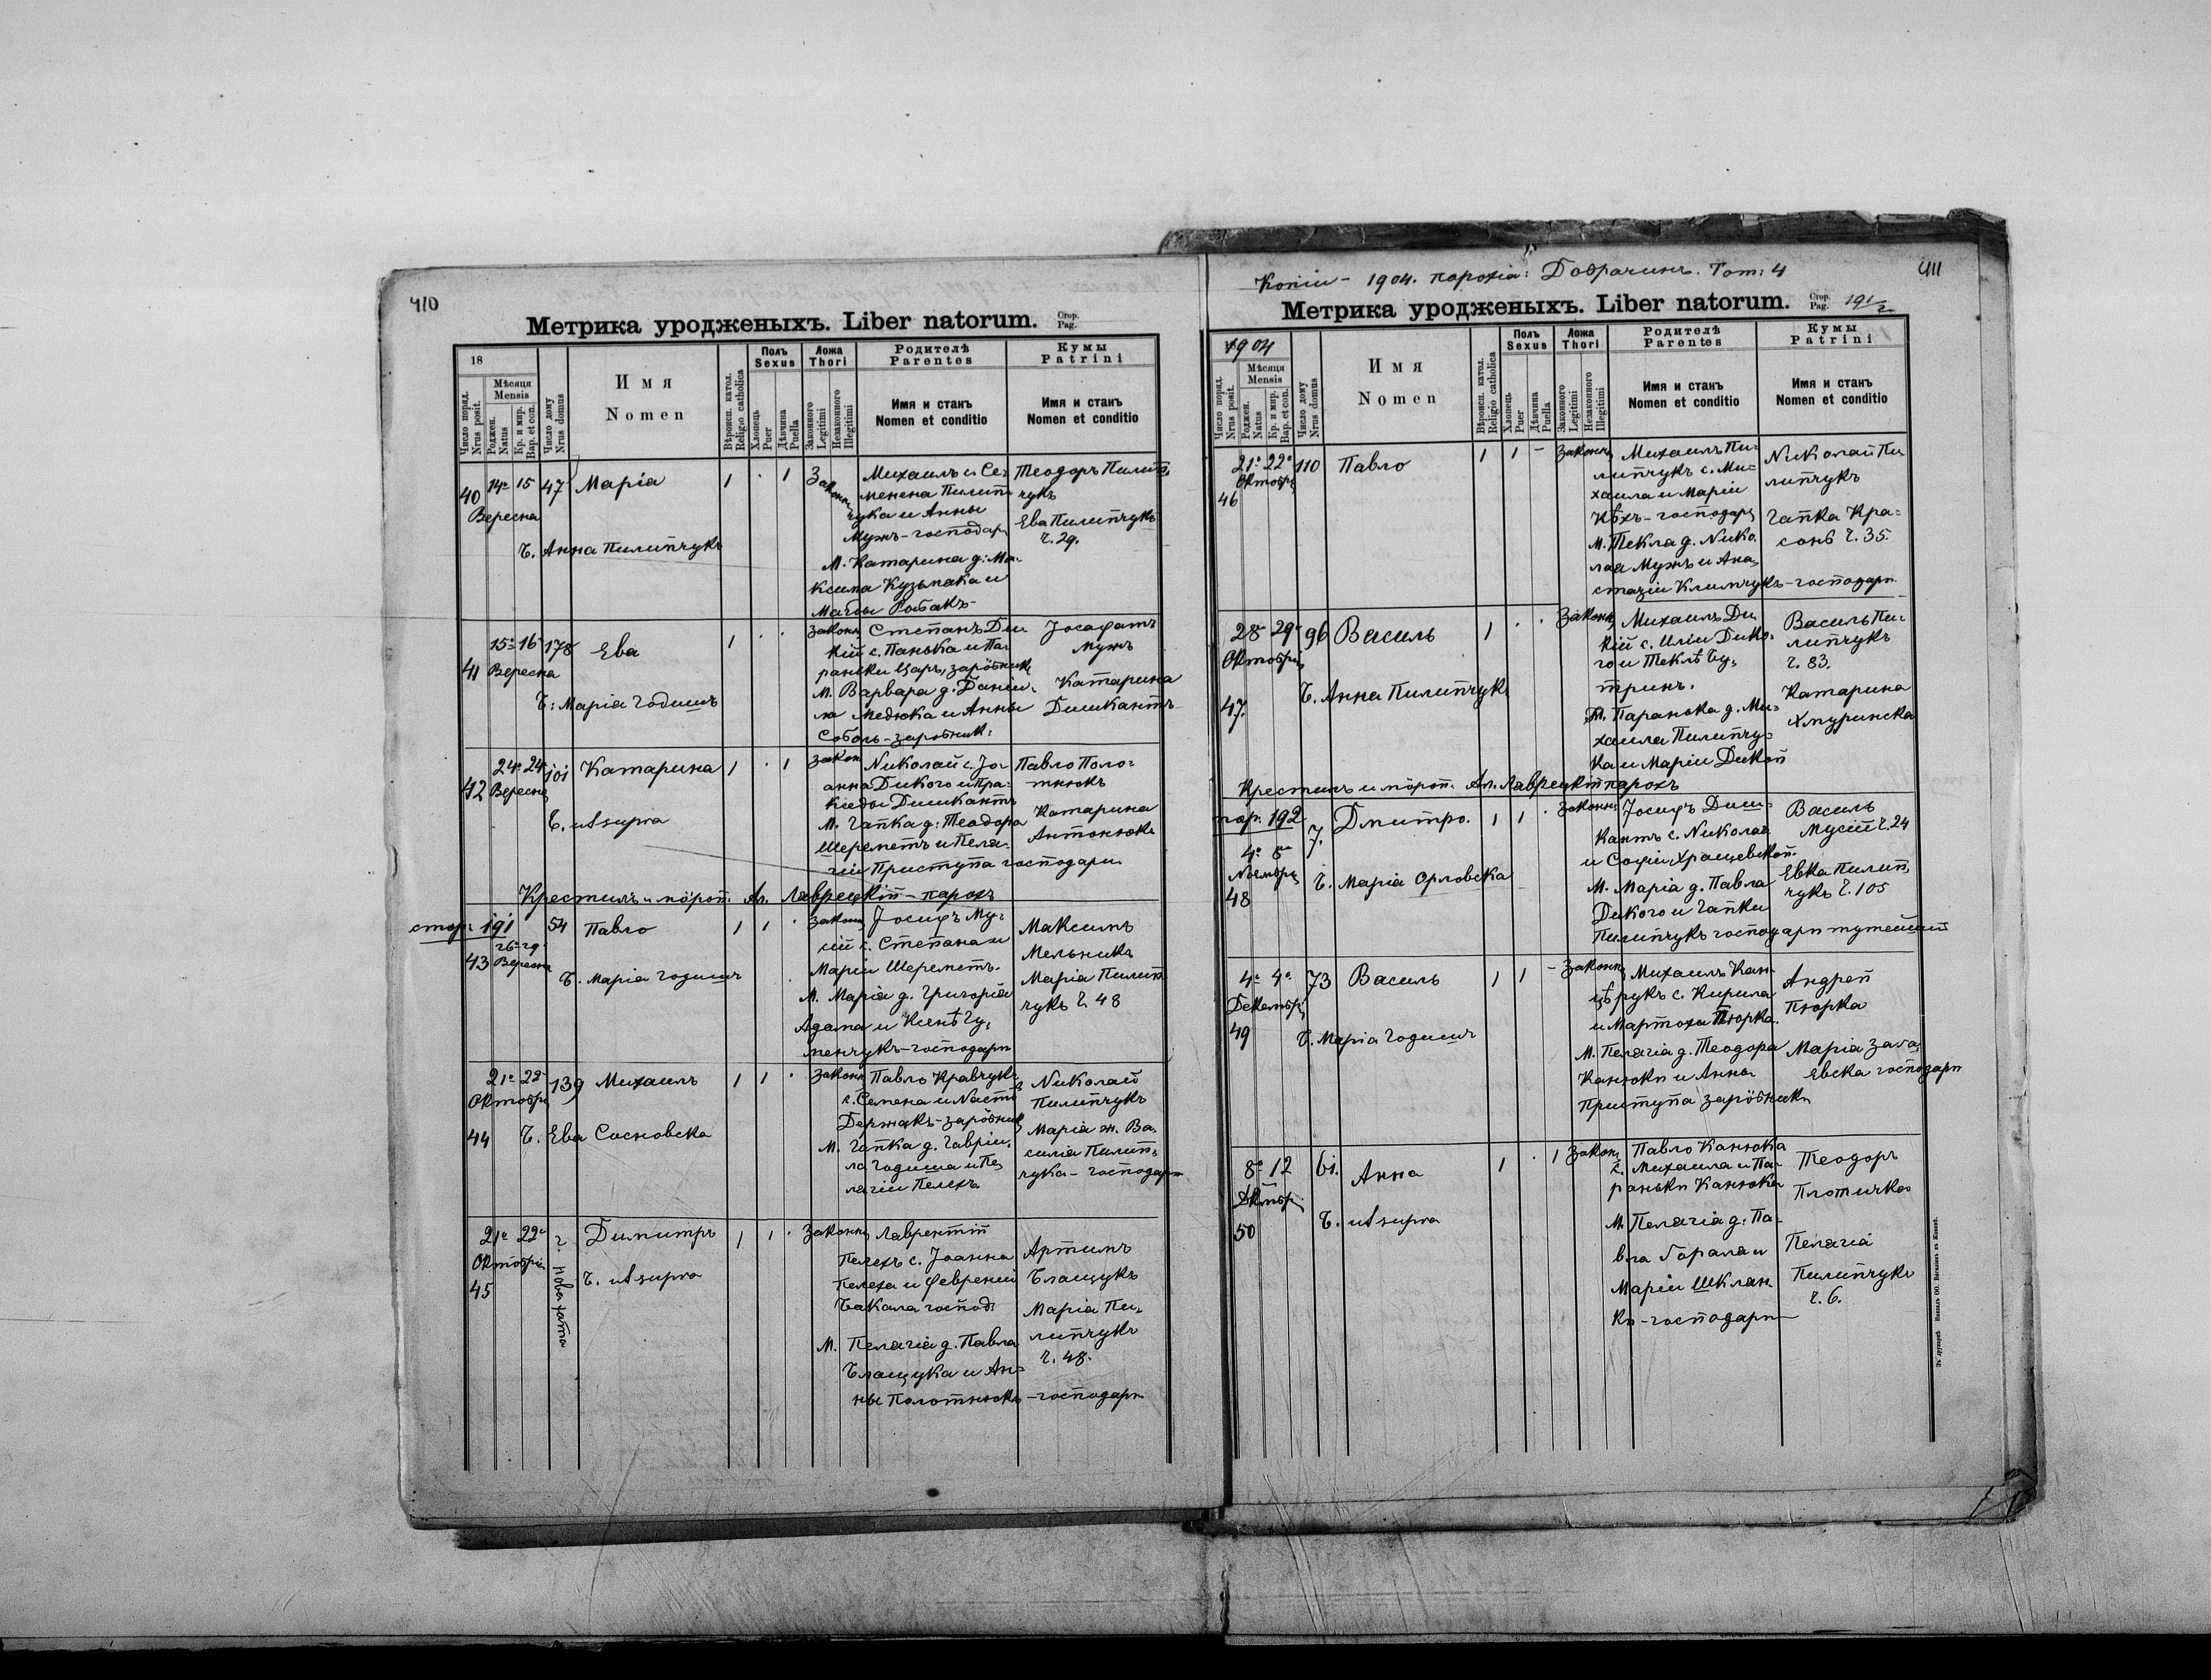 410
Метрика уродженыхъ. Liber natorum. Стор. Pag.
18
Число поряд. Nrus posit.
Мѣсяця Mensis
Роджен. Natus
Кр. и мир. Bap. et con.
Число дому Nrus domus
Имя
Nomen
Вѣроисп. катол. Religio catholica
Полъ Sexus
Хлопець Puer
Дѣвчина Puella
Ложа Thori
Законного Legitimi
Незаконного Illegitimi
Родителѣ Parentes
Имя и станъ
Nomen et conditio
Кумы Patrini
Имя и станъ
Nomen et conditio
40 14 15 Вересна 47 Марія 1 · 1 Законн
Б. Анна Пилипчукъ
Михаилъ с. Се-
мена Пилип-
чука и Анны
Мужъ - господар
М. Катарина д. Ма-
ксима Кузьмака и
Магды Робакъ-
Теодоръ Пилип-
чукъ
Ева Пилипчукъ
ч. 29.
41 15 16 Вересна 178 Ева 1 · · Законн
Б: Марія Годишъ
Степанъ Ди-
кій с. Панька и Па-
раньки Царъ, заробник
М. Варвара д. Даніи-
ла Медюка и Анны
Соболь - заробник:
Іосафатъ
Мужъ
Катарина
Дишкантъ
42 24 24 Вересня 101 Катарина 1 · 1 Закон
Б. ut supra
Николай с. Іо-
анна Дикого и Пра-
кседы Дишкантъ
М. Гапка д: Теодора
Шереметъ и Пела-
гіи Приступа господари
Павло Поло-
тнюкъ
Катарина
Антонюкъ
Крестилъ и мѵроп. Ал. Лаврецкій - парохъ
стор: 191
43 26 29 Вересня 54 Павло 1 1 · Законн
Б. Марія Годишъ
Іосифъ Му-
сій с. Степана и
Маріи Шереметъ.
М. Марія д. Григорія
Адама и Ксенѣ Гу-
менчукъ - господари
Максимъ
Мельникъ
Марія Пилип-
чукъ Ч. 48
44 21 22 Октобрія 139 Михаилъ 1 1 · Законн
Б. Ева Сосновска
Павло Кравчукъ
с. Семена и Насті
Держакъ - заробник
М. Гапка д. Гавріи-
ла Годиша и Пе-
лагіи Пелехъ
Николай
Пилипчукъ
Марія ж. Ва-
силія Пилип-
чука - господари
45 21 22 Октобрія ч. нова хата Димитръ 1 1 · Законн
Б. ut supra
Лаврентій
Пелехъ с. Іоанна
Пелеха и Февроніи
Бакала господ:
М. Пелагія д. Павла
Блащука и Ан-
ны Полотнюкъ - господари
Артимъ
Блащукъ
Марія Пи-
липчукъ
ч. 48.
Копіи - 1904. парохіа: Бобрачинъ. Tom: 4
411
Метрика уродженыхъ. Liber natorum. Стор. Pag. 191/2
1904
Число поряд. Nrus posit.
Мѣсяця Mensis
Роджен. Natus
Кр. и мир. Bap. et con.
Число дому Nrus domus
Имя
Nomen
Вѣроисп. катол. Religio catholica
Полъ Sexus
Хлопець Puer
Дѣвчина Puella
Ложа Thori
Законного Legitimi
Незаконного Illegitimi
Родителѣ Parentes
Имя и станъ
Nomen et conditio
Кумы Patrini
Имя и станъ
Nomen et conditio
46 21 22 Октобрія 110 Павло 1 1 - Законн
Михаилъ Пи-
липчукъ с. Ми-
хаила и Маріи
Кѣхъ - господари
М. Текла д. Нико-
лая Мужъ и Ана-
стазіи Климчукъ - господари
Николай Пи-
липчукъ
Гапка Кра-
сонь Ч. 35.
47. 28 29 Октобрія 96 Василь 1 · · Законн
Б. Анна Пилипчукъ
Михаилъ Ди-
кій с. Иліи Дико-
го и Теклѣ Бу-
тринъ.
М. Паранька д. Ми-
хаила Пилипчу-
ка и Маріи Дикой
Василь Пи-
липчукъ
ч. 83.
Катарина
Хмуринска
Крестилъ и мѵроп. Ал. Лаврецкій парохъ
стор. 192
48 4 5 Ноемврія 7. Дмитро. 1 1 · Законн
Б. Марія Орловска
Іосифъ Диш-
кантъ с. Николая
и Софіи Хращевской.
М. Марія д. Павла
Дикого и Гапки
Пилипчукъ господари тутейшіи
Василь
Мусій Ч. 24
Евка Пилип-
чукъ Ч. 105
49 4 4 Декемврія 73 Василь 1 1 - Законн
Б. Марія Годишъ
Михаилъ Кан-
цѣрукъ с. Кирила
и Мартоха Пюрка.
М. Пелагія д. Теодора
Канюки и Анны
Приступа заробники
Андрей
Пюрка
Марія Зала-
евска господари
50 8 12 Декемврія 61. Анна 1 · 1 Законн
Б. ut supra
Павло Канюка
с. Михаила и Па-
раньки Канюка
М. Пелагія д: Па-
вла Горала и
Маріи Шклян-
ки - господари
Теодоръ
Плотичка
Пелагія
Пилипчукъ
ч. 6.